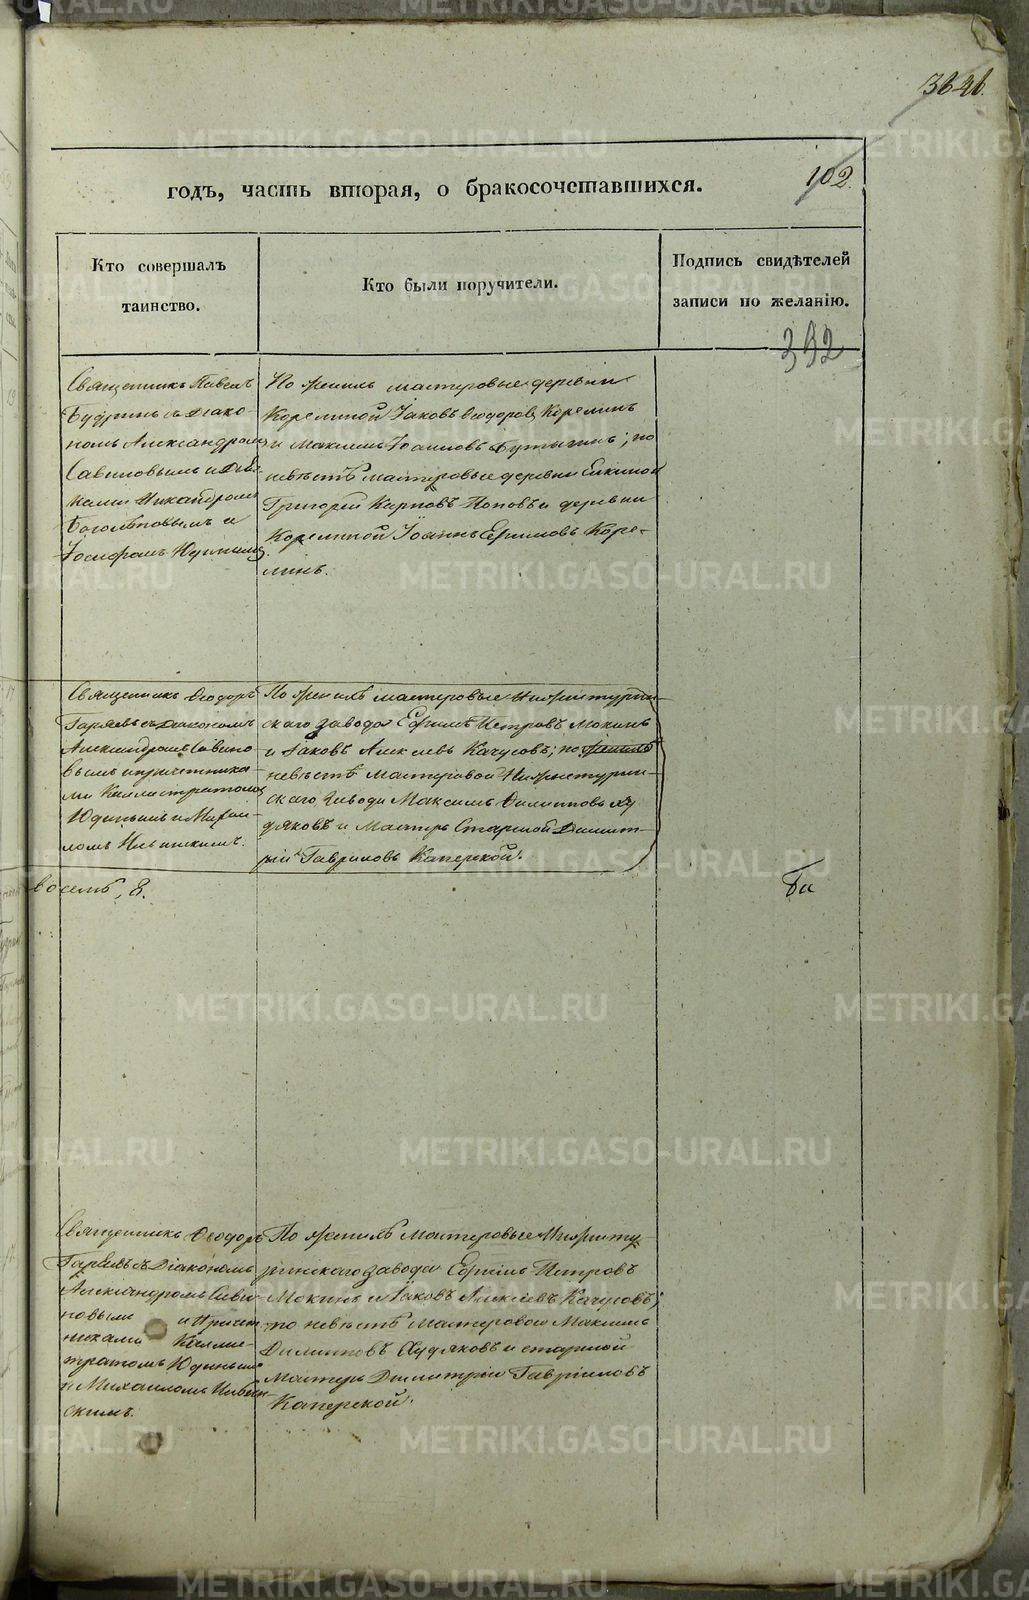 102.
годъ, часть вторая, о бракосочетавшихся.
Кто совершалъ
таинство.
Кто были поручители.
Подпись свидѣтелей
записи по желанію.
392
Священникъ Павелъ
Будринъ съ Діако-
номъ Александромъ
Савиновымъ и
Никандромъ
и
Іосифомъ
По женихѣ мастеровые деревни
Корелиной Іаковъ Ѳеодоровъ Корелинъ
и Максимъ Іоанновъ по
невѣстѣ мастеровые деревни Елкиной
Григорій Карповъ Поповъ и деревни
Корелиной Іоаннъ Ефимовъ Коре-
линъ.
Священникъ Ѳеодоръ
съ Діакономъ
Александромъ Савино-
вымъ и причетника-
ми Каллистратомъ
Юдинымъ и Михаи-
ломъ
По женихѣ мастеровые Нижнетурин-
скаго завода Ефимъ Петровъ Мокинъ
и Іаковъ Алексѣевъ Качусовъ; по женихѣ
невѣстѣ Мастеровой Нижнетурин-
скаго завода Максимъ Филипповъ Ху
дяковъ и Мастеръ Старшой Димит-
рій Гавриловъ Каперской.
восемь, 8.
Священникъ Ѳеодоръ
съ Діакономъ
Александромъ Сави-
новымъ и Причет-
никами Калли-
тратомъ Юдинымъ
и Михаиломъ
скимъ.
По женихѣ Мастеровые Нижнету
ринскаго завода Ефимъ Петровъ
Мокинъ и Іаковъ Алексѣевъ Качусовъ;
по невѣстѣ Мастеровой Максимъ
Филипповъ Худяковъ и старшой
Мастеръ Димитрій Гавріиловъ
Каперской.
METRIKI.GASO-URAL.RU